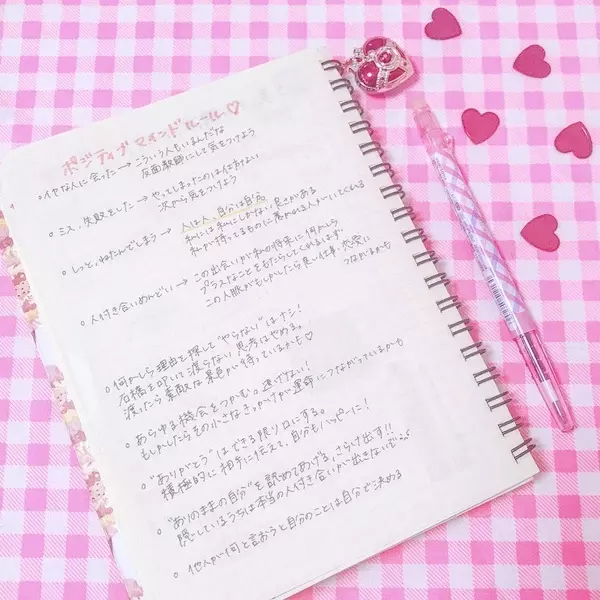 ポジティブマインドルール♡
○イヤな人に会った→こういう人もいるんだな
反面教師にして気をつけよう
○ミス、失敗をした→やってしまったのは仕方ない
次から気をつけよう
○しっと、ねたんでしまう→人は人、自分は自分
私には私にしかない良さがある
私が持ってるものに惹かれる人がついてくる
○人付き合いめんどい→この出会いが私の将来に何かしら
プラスなことをもたらしてくれるはず
この人脈がもしかしたら良い仕事、恋愛に
つながるかも
○何かしら理由を探して"やらない"はナシ!
石橋を叩いて渡らない思考はやめる。
渡ったら素敵な景色が待っているかも♡
○あらゆる機会をつかむ。逃げない!
もしかしたらその小さなきっかけが運命につながっているかも
○"ありがとう"はできる限り口にする。
積極的に相手に伝えて、自分もハッピーに!
○"ありのままの自分"を認めてあげる、さらけ出す!!
隠しているうちは本当の人付き合いが出きないぞ
○他人が何と言おうと自分のことは自分で決める